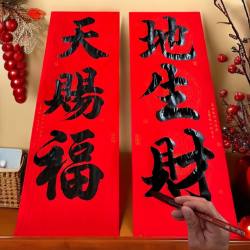 地生財
天賜福